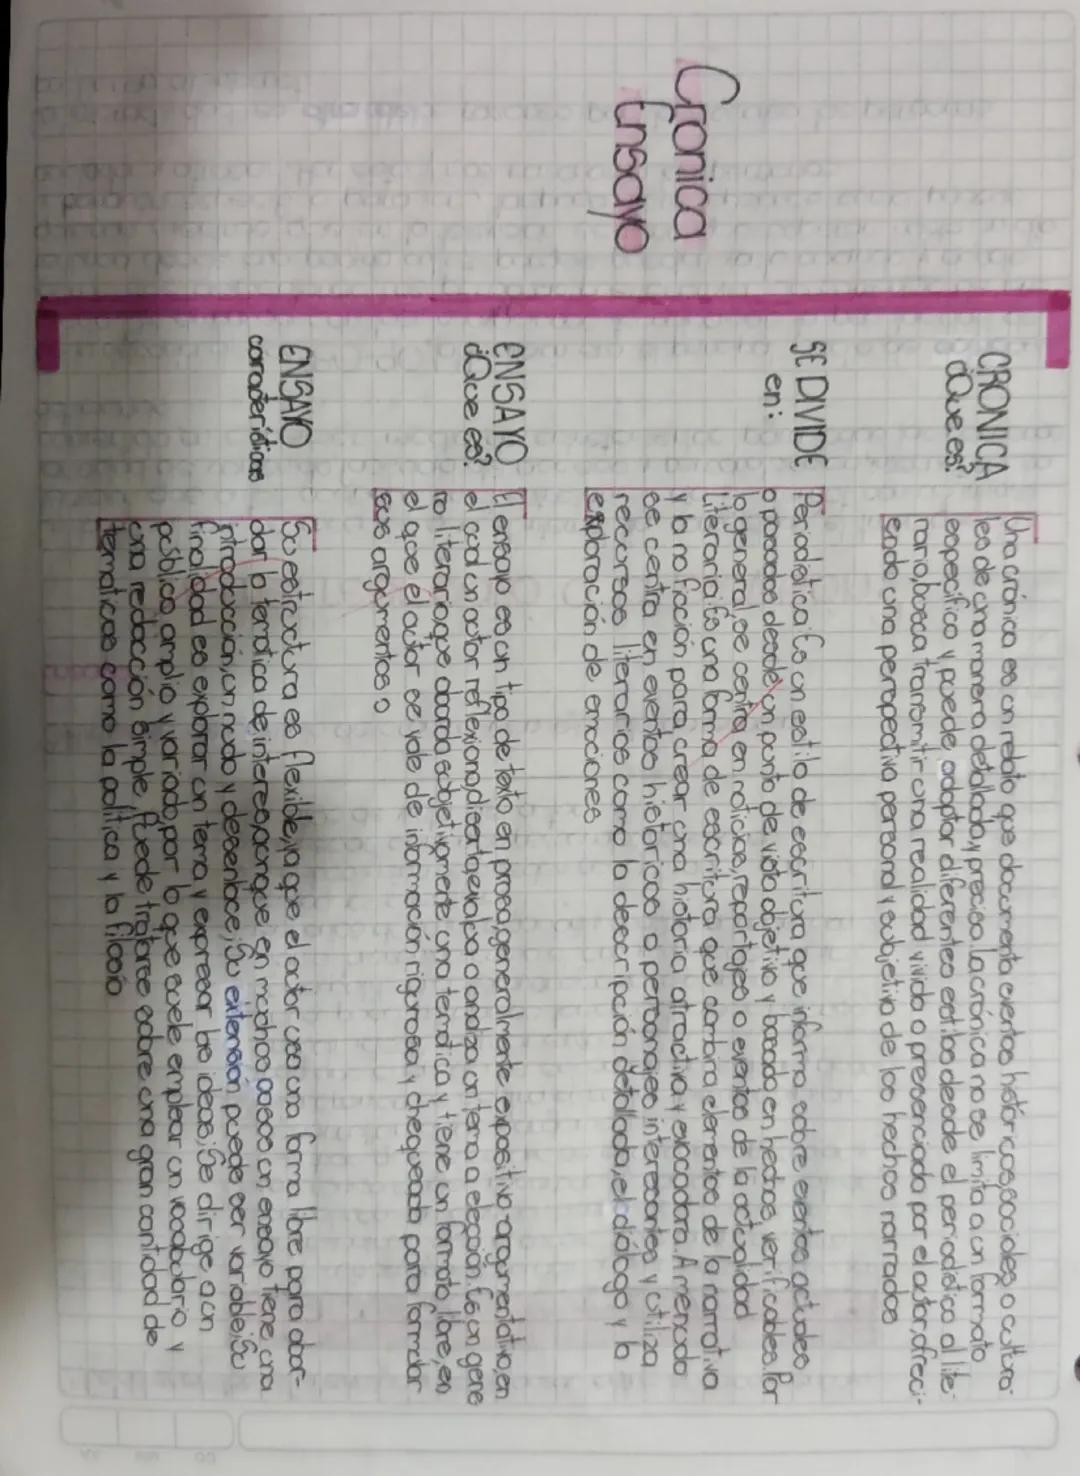 Cronica
Ensayo
CRONICA
¿Que es?
Una crónica es un relato que documenta eventos históricos, sociales o cultura-
les de una manera detallada y precisa. La crónica no se limita a un formato
especifico y puede adoptar diferentes estilos desde el periodistico al lite-
rario, busca transmitir una realidad vivida o presenciada por el autor, ofreci-
endo una perspectiva personal y subjetiva de los hechos narrados
SE DIVIDE
en:
Periodistica: Es un estilo de escritura que informa sobre eventos actuales
o pasados desde un punto de vista objetivo y basado en hechos verificables. Por
lo general, se centra en noticias, reportajes o eventos de la actualidad
Literaria: Es una forma de escritura que combina elementos de la narrativa
y la no ficción para crear una historia atractiva y evocadora. A menudo
se centra en eventos historicos o personajes interesantes y utiliza
recursos literarios como la descripción detallada, el diálogo y la
exploración de emociones
ENSAYO
¿Que es?
El ensayo es un tipo de texto en prosa, generalmente expositivo-argumentativo, en
el cual un autor reflexiona, diserta, evalua o analiza un tema a elegcion. Es un gene
ro literario que aborda subjetivamente una tematica y tiene un formato libre, en
el que el autor se vale de información rigurosa y chequeada para formular
sus argumentos
ENSAYO
caracteristicas
Su estructura es flexible, ya que el autor usa una forma libre para abor-
dar la temática de interes, aunque en muchos casos un ensayo tiene una
introducción, un nudo y desenlace; Su extensión puede ser variable; Su
finalidad es explorar un tema y expresar las ideas; Se dirige a un
público amplio y variado, por lo que suele emplear un vocabulario y
una redacción simple, Puede tratarse sobre una gran cantidad de
tematicas como la política y la filosio